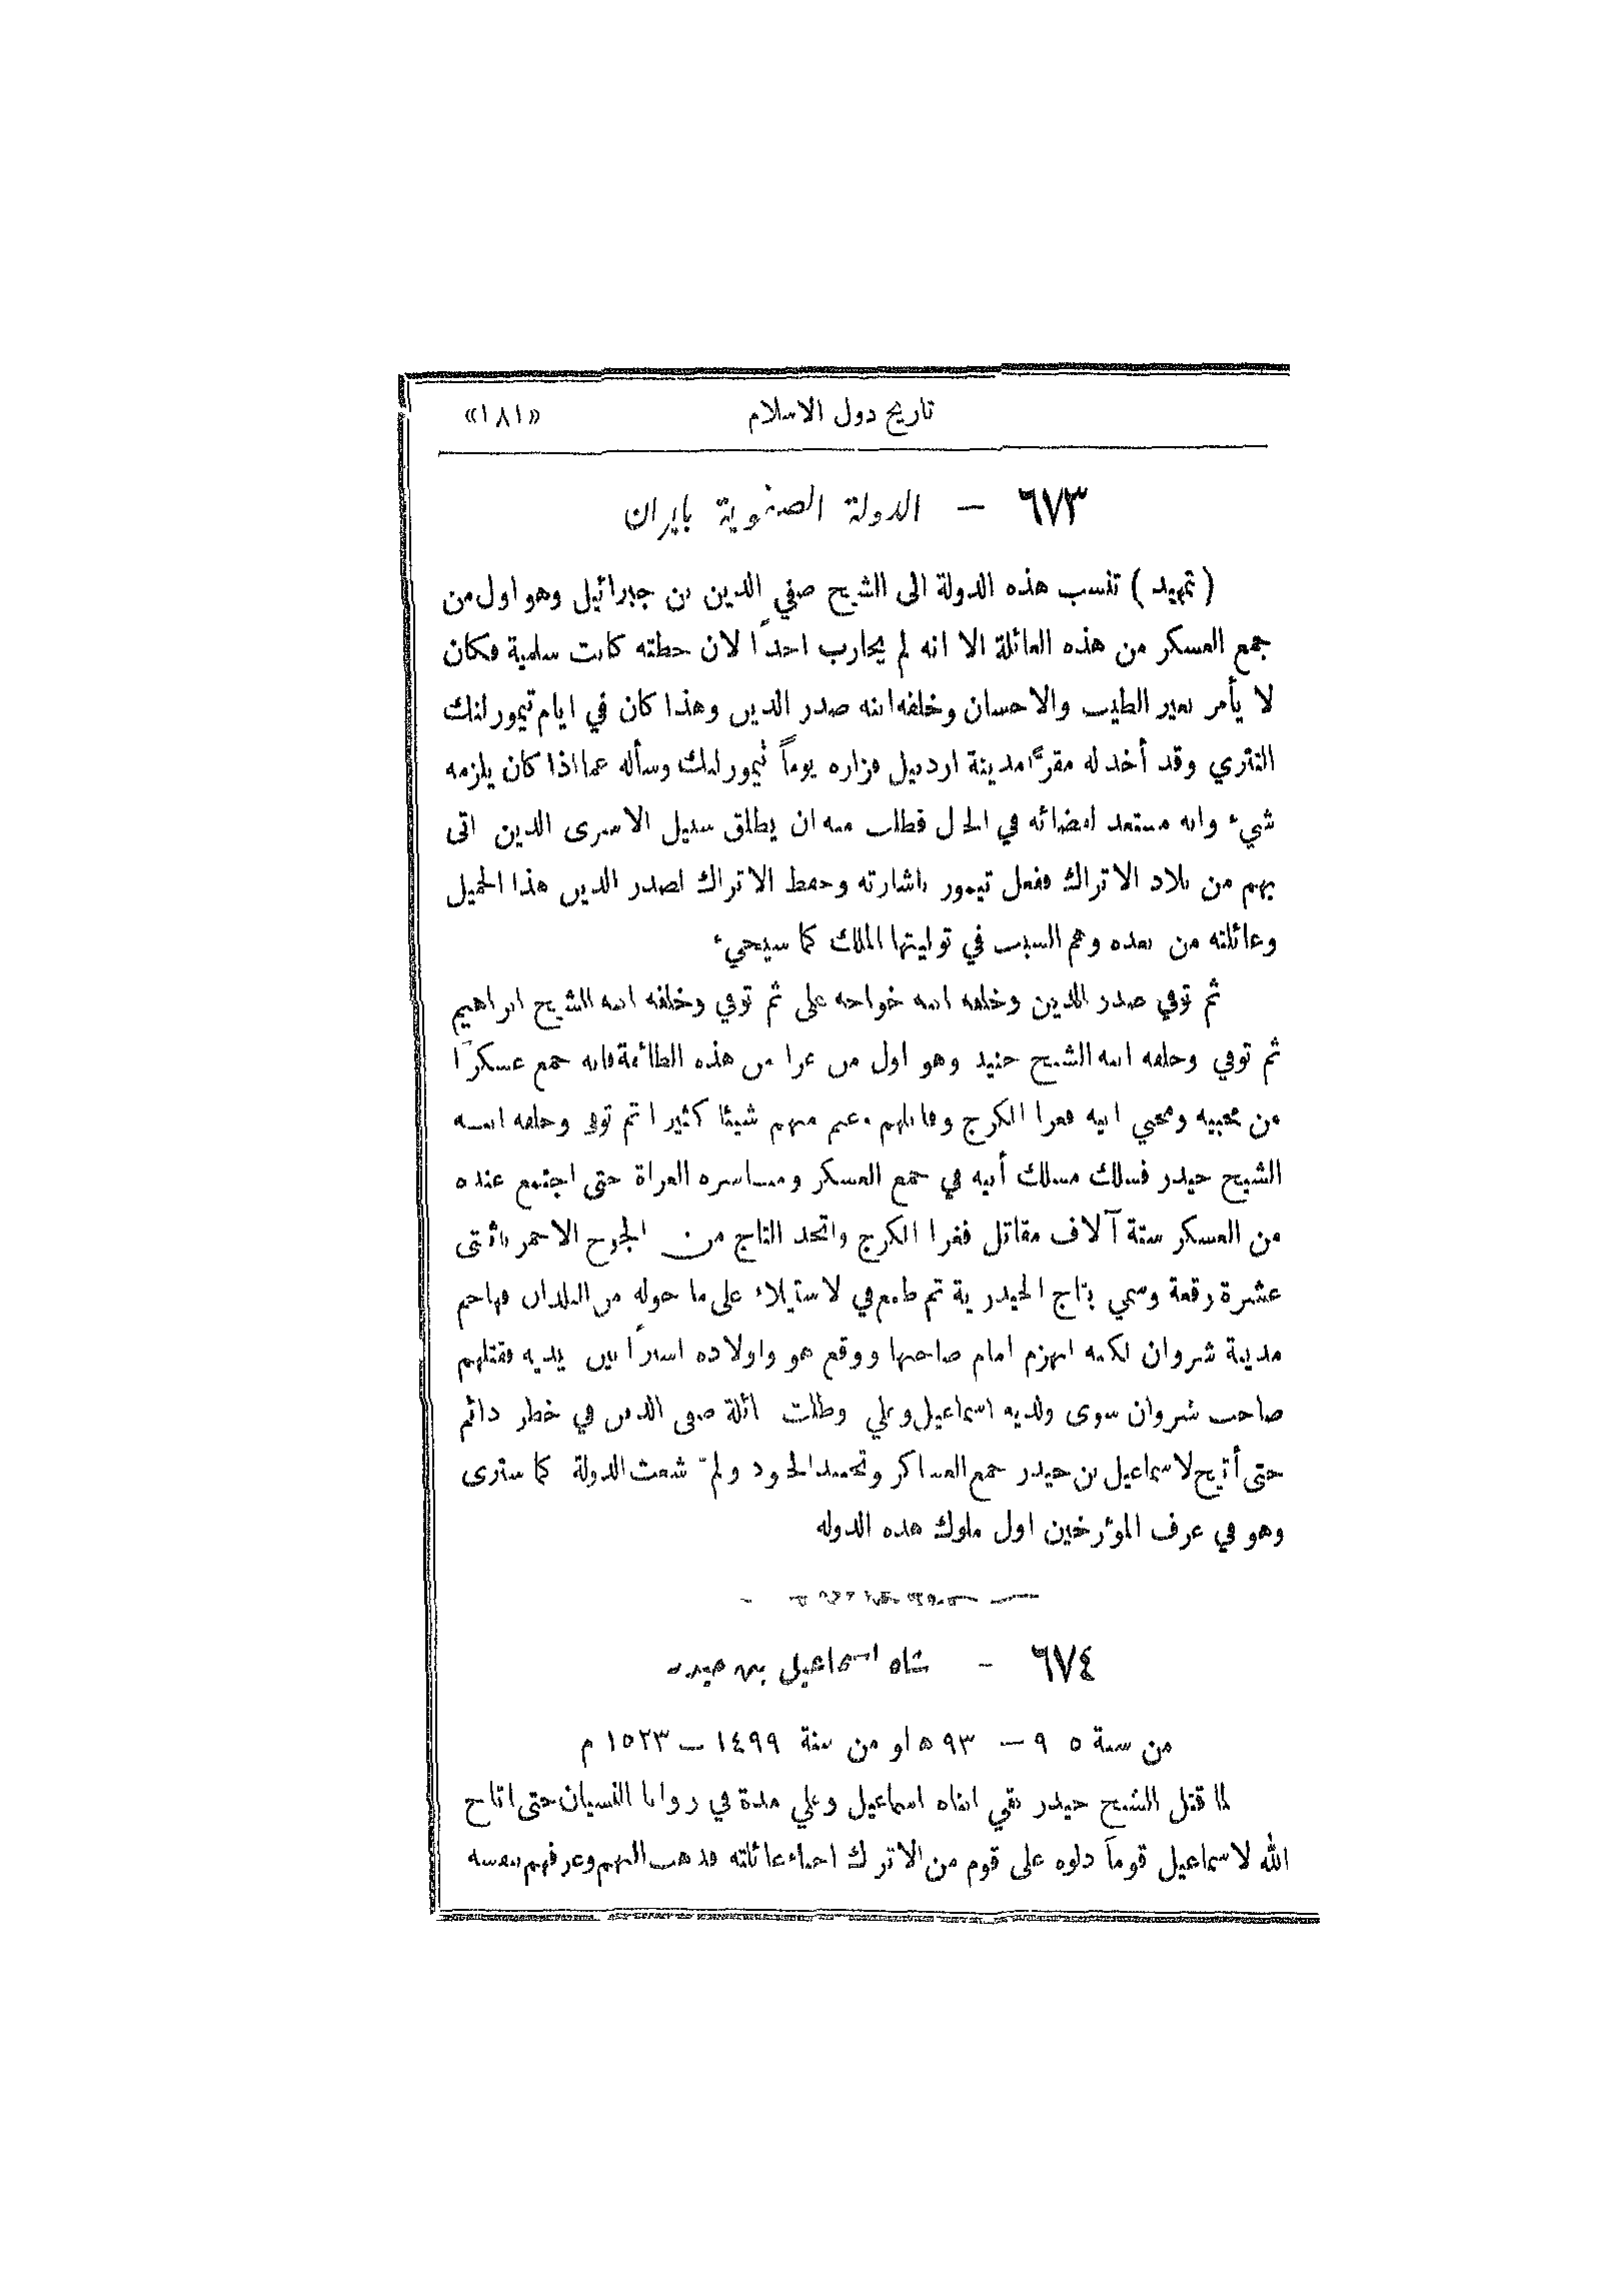 تاريخ دول الاسلام «١٨١»
٦٧٣ – الدولة الصفوية بايران
( تمهيد ) تنسب هذه الدولة الى الشيخ صفي الدين بن جبرائيل وهو اول من
جمع العسكر من هذه العائلة الا انه لم يحارب احداً لان خطته كانت سلمية فكان
لا يأمر بغير الطيب والاحسان وخلفه ابنه صدر الدين وهذا كان في ايام تيمور لنك
التتري وقد أخذ له مقرًّا مدينة اردبيل فزاره يوماً تيمور لنك وسأله عما اذا كان يلزمه
شيء وانه مستعد لامضائه في الحال فطلب منه ان يطلق سبيل الاسرى الذين اتى
بهم من بلاد الاتراك ففعل تيمور باشارته وحفظ الاتراك لصدر الدين هذا الجميل
وعائلته من بعده وهم السبب في توليتها الملك كما سيجيء
ثم توفي صدر الدين وخلفه ابنه خواجه على ثم توفي وخلفه ابنه الشيخ ابراهيم
ثم توفي وخلفه ابنه الشيخ جنيد وهو اول من غزا من هذه الطائفة فانه جمع عسكراً
من محبيه ومحبي ابيه فغزا الكرج وقاتلهم وغنم منهم شيئا كثيرا ثم توفي وخلفه ابنه
الشيخ حيدر فسلك مسلك أبيه في جمع العسكر ومباشره الغزاة حتى اجتمع عنده
من العسكر ستة آلاف مقاتل فغزا الكرج واتخذ التاج من الجوخ الاحمر باثنتى
عشرة رقعة وسمي بتاج الحيدرية ثم طمع في لاستيلاء على ما حوله من البلدان فهاجم
مدينة شروان لكنه انهزم امام صاحبها ووقع هو واولاده اسراً بين يديه فقتلهم
صاحب شروان سوى ولديه اسماعيل وعلي وظلت ائلة صفى الدين في خطر دائم
حتى أتيح لاسماعيل بن حيدر جمع العساكر وتجنيد الجنود ولمّ شعث الدولة كما سترى
وهو في عرف المؤرخين اول ملوك هذه الدوله
٦٧٤ – شاه اسماعيل بن حيدر
من سنة ٩٠٥ – ٩٣٠ ه او من سنة ١٤٩٩ – ١٥٢٣ م
لما قتل الشيخ حيدر بقي ابناه اسماعيل وعلي مدة في زوايا النسيان حتى اتاح
الله لاسماعيل قوماً دلوه على قوم من الاتراك احباء عائلته فذهب اليهم وعرفهم بنفسه